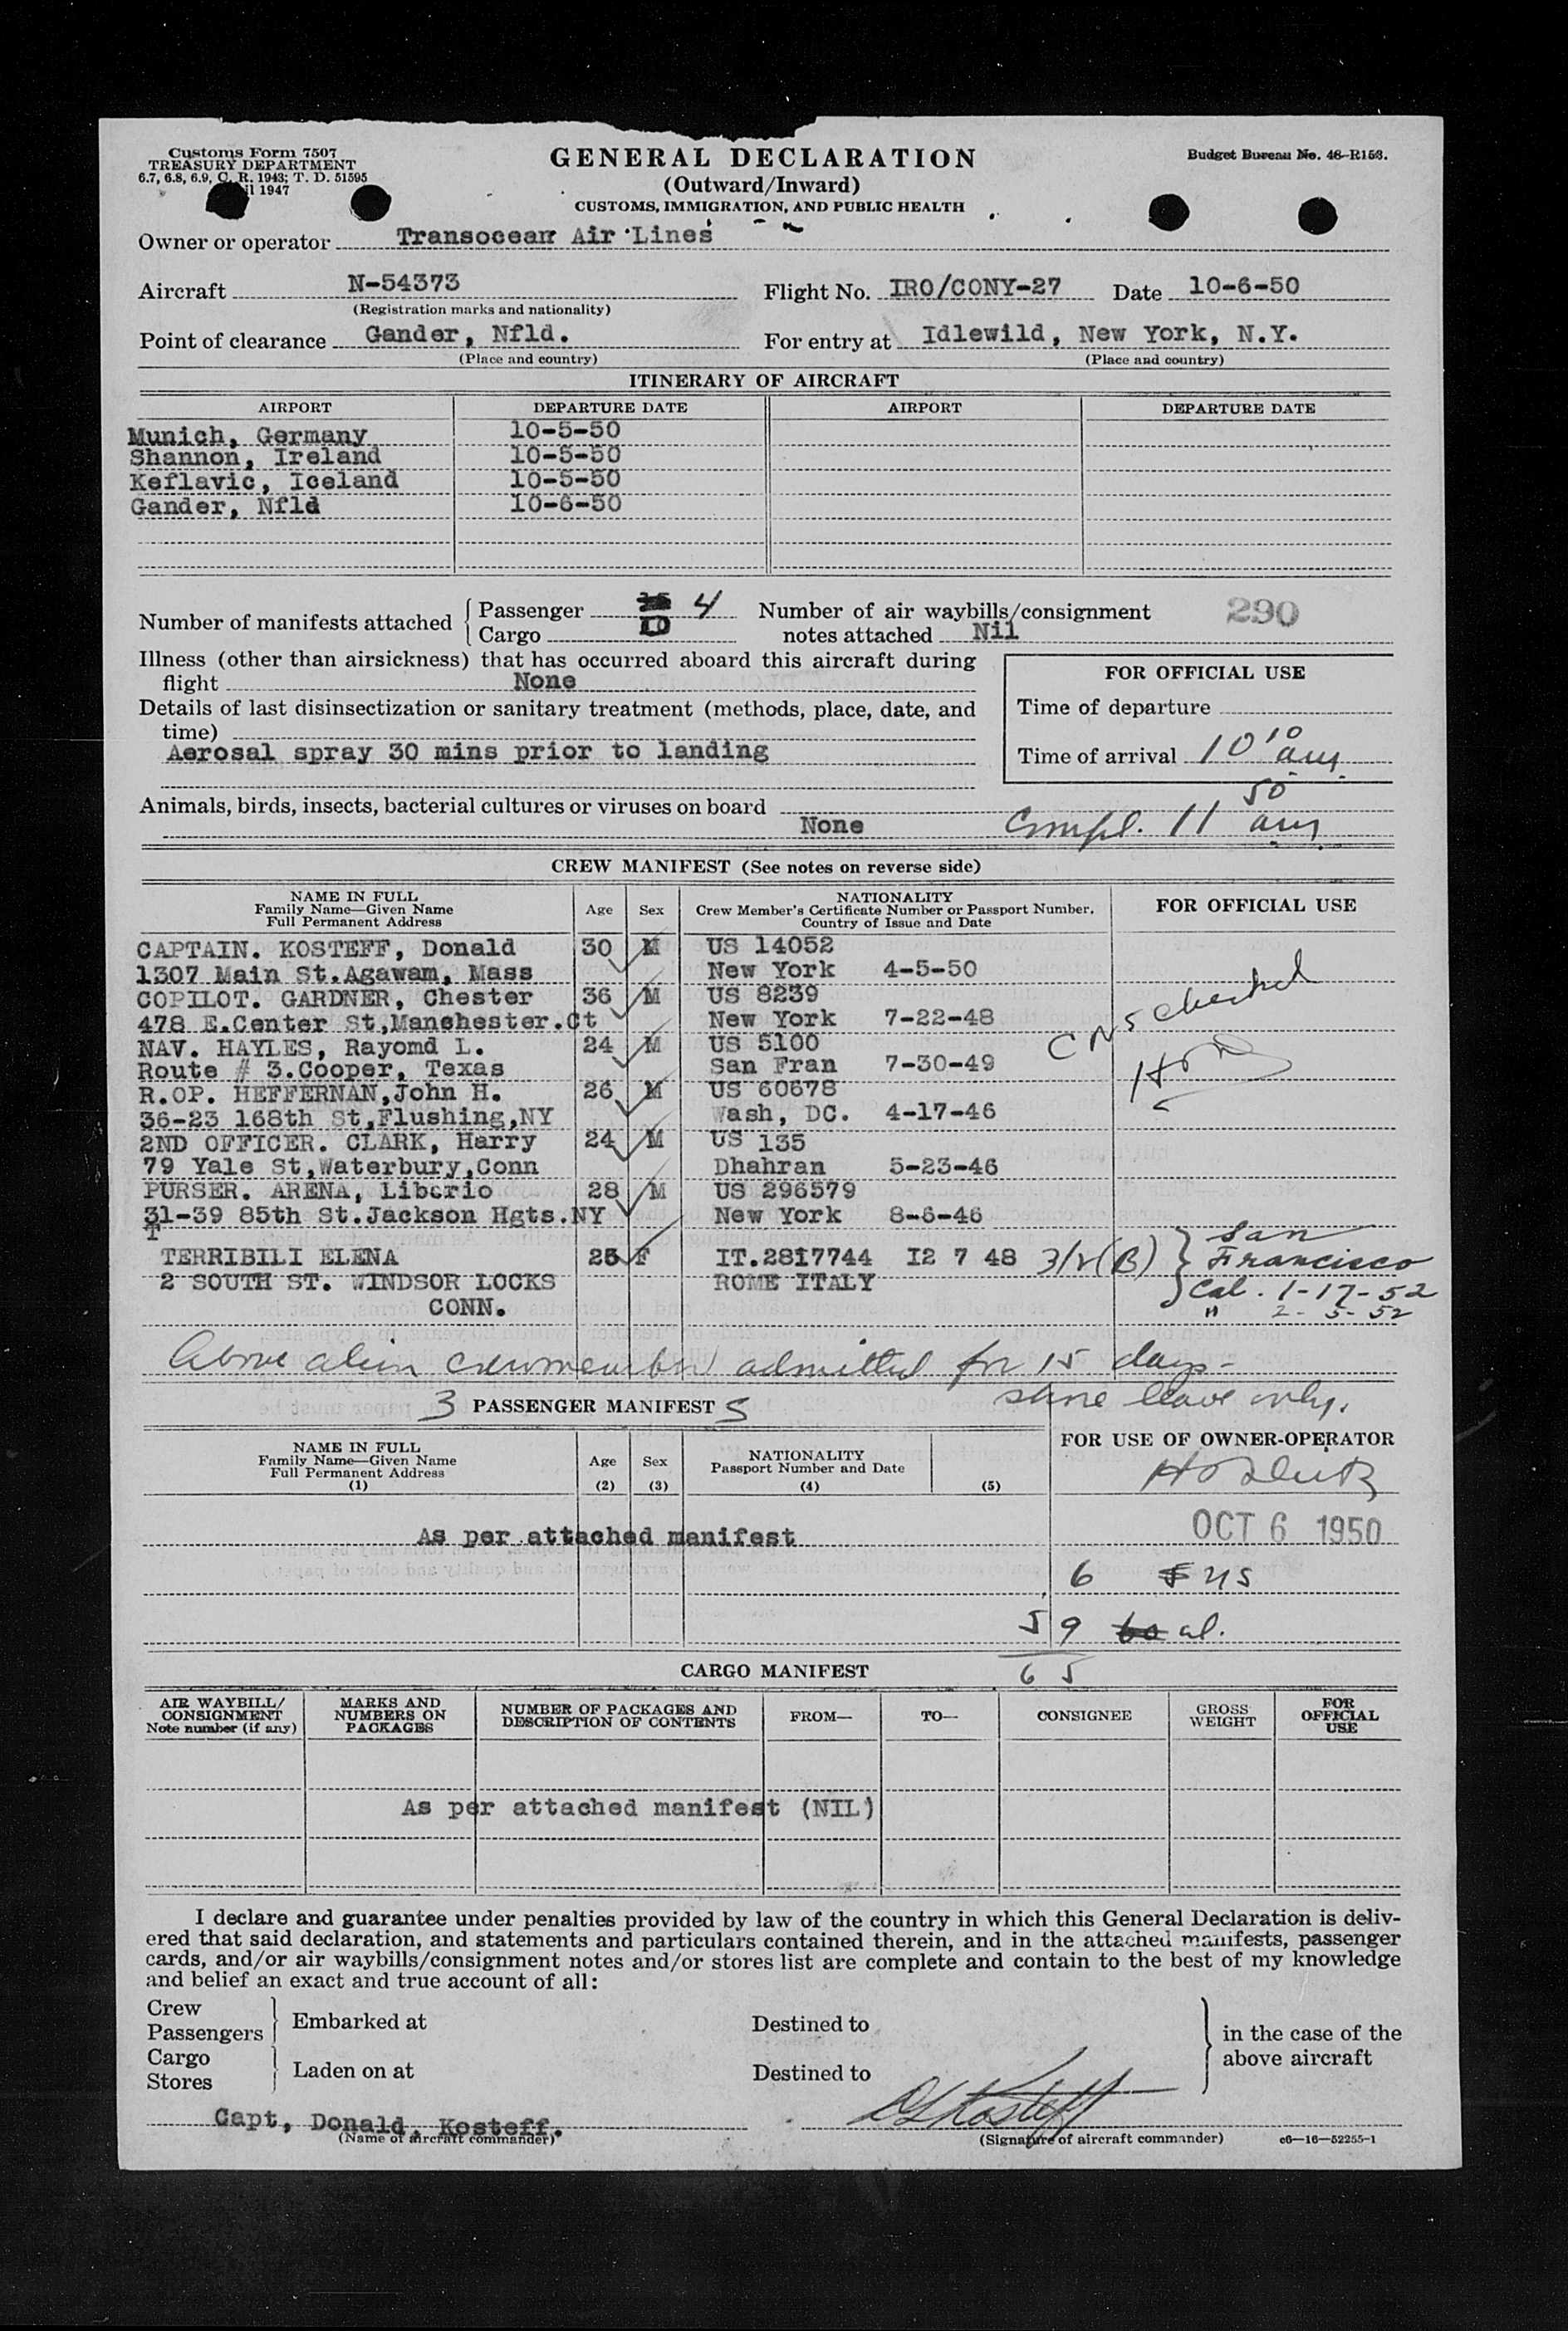 Customs Form 7507
TREASURY DEPARTMENT
6.7, 6.8, 6.9, C. R. 1943; T. D. 51595
1947
GENERAL DECLARATION
(Outward/Inward)
CUSTOMS, IMMIGRATION, AND PUBLIC HEALTH
Budget Bureau No. 48-R153.
Owner or operator Transocean Air Lines
Aircraft N-54373 Flight No. IRO/CONY-27 Date 10-6-50
(Registration marks and nationality)
Point of clearance Gander, Nfld. For entry at Idlewild, New York, N.Y.
(Place and country) (Place and country)
ITINERARY OF AIRCRAFT
AIRPORT DEPARTURE DATE AIRPORT DEPARTURE DATE
Munich, Germany 10-5-50
Shannon, Ireland 10-5-50
Keflavic, Iceland 10-5-50
Gander, Nfld 10-6-50
Number of manifests attached Passenger 4
Cargo
Number of air waybills/consignment
notes attached Nil
290
Illness (other than airsickness) that has occurred aboard this aircraft during
flight None
Details of last disinsectization or sanitary treatment (methods, place, date, and
time)
Aerosal spray 30 mins prior to landing
FOR OFFICIAL USE
Time of departure
Time of arrival 10 10 am
Animals, birds, insects, bacterial cultures or viruses on board
None
Compl. 11 50 am
CREW MANIFEST (See notes on reverse side)
NAME IN FULL
Family Name—Given Name
Full Permanent Address
Age
Sex
NATIONALITY
Crew Member's Certificate Number or Passport Number,
Country of Issue and Date
FOR OFFICIAL USE
CAPTAIN. KOSTEFF, Donald 30 M US 14052
1307 Main St.Agawam, Mass New York 4-5-50
COPILOT. GARDNER, Chester 36 M US 8239
478 E.Center St,Manchester.Ct New York 7-22-48
NAV. HAYLES, Rayomd L. 24 M US 5100
Route # 3.Cooper, Texas San Fran 7-30-49
R.OP. HEFFERNAN,John H. 26 M US 60678
36-23 168th St,Flushing,NY Wash, DC. 4-17-46
2ND OFFICER. CLARK, Harry 24 M US 135
79 Yale St,Waterbury,Conn Dhahran 5-23-46
PURSER. ARENA, Liberio 28 M US 296579
31-39 85th St.Jackson Hgts.NY New York 8-6-46
T
TERRIBILI ELENA 25 F IT.2817744 I2 7 48 3/2(B)
2 SOUTH ST. WINDSOR LOCKS ROME ITALY
CONN.
checked
San
Francisco
Cal. 1-17-52
" 2-5-52
Above alien crewmember admitted for 15 days-
shore leave only.
3 PASSENGER MANIFEST 5
NAME IN FULL
Family Name—Given Name
Full Permanent Address
(1)
Age
(2)
Sex
(3)
NATIONALITY
Passport Number and Date
(4)
(5)
FOR USE OF OWNER-OPERATOR
As per attached manifest
OCT 6 1950
6 US
59 al.
65
CARGO MANIFEST
AIR WAYBILL/
CONSIGNMENT
Note number (if any)
MARKS AND
NUMBERS ON
PACKAGES
NUMBER OF PACKAGES AND
DESCRIPTION OF CONTENTS
FROM—
TO—
CONSIGNEE
GROSS
WEIGHT
FOR
OFFICIAL
USE
As per attached manifest (NIL)
I declare and guarantee under penalties provided by law of the country in which this General Declaration is deliv-
ered that said declaration, and statements and particulars contained therein, and in the attached manifests, passenger
cards, and/or air waybills/consignment notes and/or stores list are complete and contain to the best of my knowledge
and belief an exact and true account of all:
Crew
Passengers
Embarked at
Destined to
Cargo
Stores
Laden on at
Destined to
in the case of the
above aircraft
Capt, Donald, Kosteff.
(Name of aircraft commander)
DL Kosteff
(Signature of aircraft commander) c6—16—52255-1